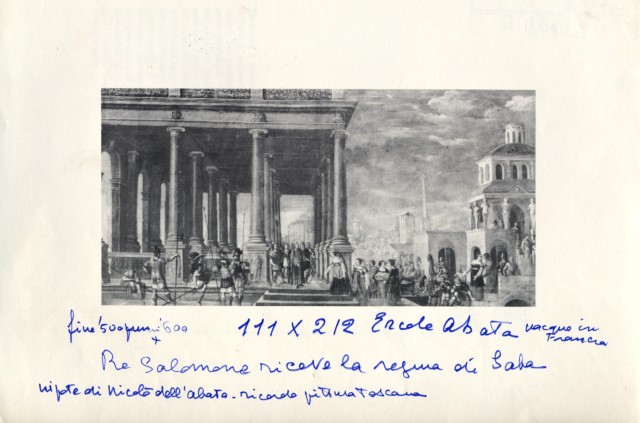 fine '500 primi '600 111 X 212 Ercole Abata nacque in Francia
Re Salomone riceve la regina di Saba
nipote di Nicolò dell'abate - ricordo pittura Toscana